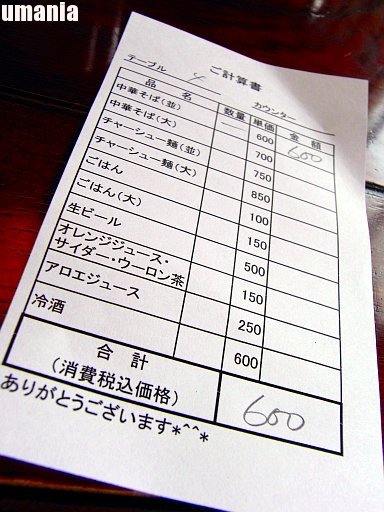 umania
ご計算書
テーブル 4 カウンター
品名 数量 単価 金額
中華そば(並) 600 600
中華そば(大) 700
チャーシュー麺(並) 750
チャーシュー麺(大) 850
ごはん 100
ごはん(大) 150
生ビール 500
オレンジジュース・
サイダー・ウーロン茶 150
アロエジュース 250
冷酒 600
合計
(消費税込価格) 600
ありがとうございます*^^*